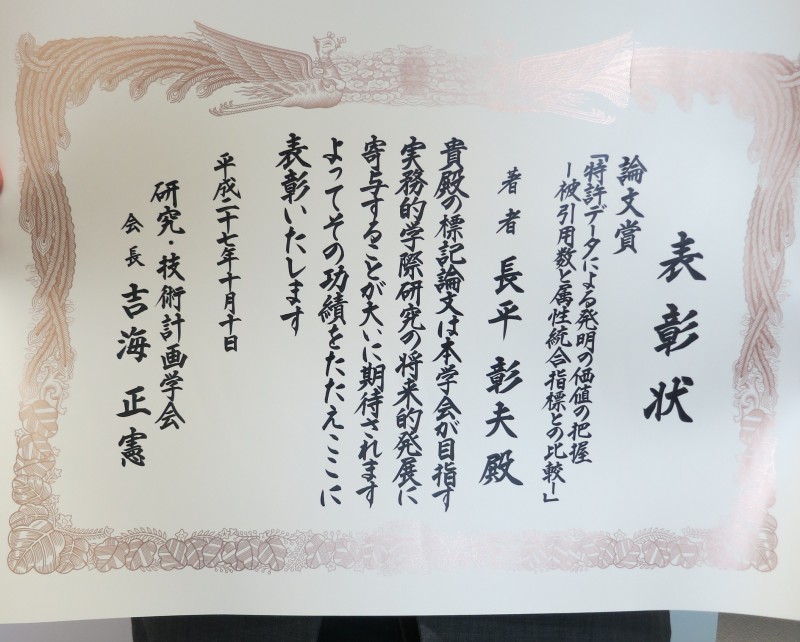 表彰状
論文賞
「特許データによる発明の価値の把握
ー被引用数と属性統合指標との比較ー」
著者 長平彰夫殿
貴殿の標記論文は本学会が目指す
実務的学際研究の将来的発展に
寄与することが大いに期待されます
よってその功績をたたえここに
表彰いたします
平成二十七年十月十日
研究・技術計画学会
会長 吉海正憲